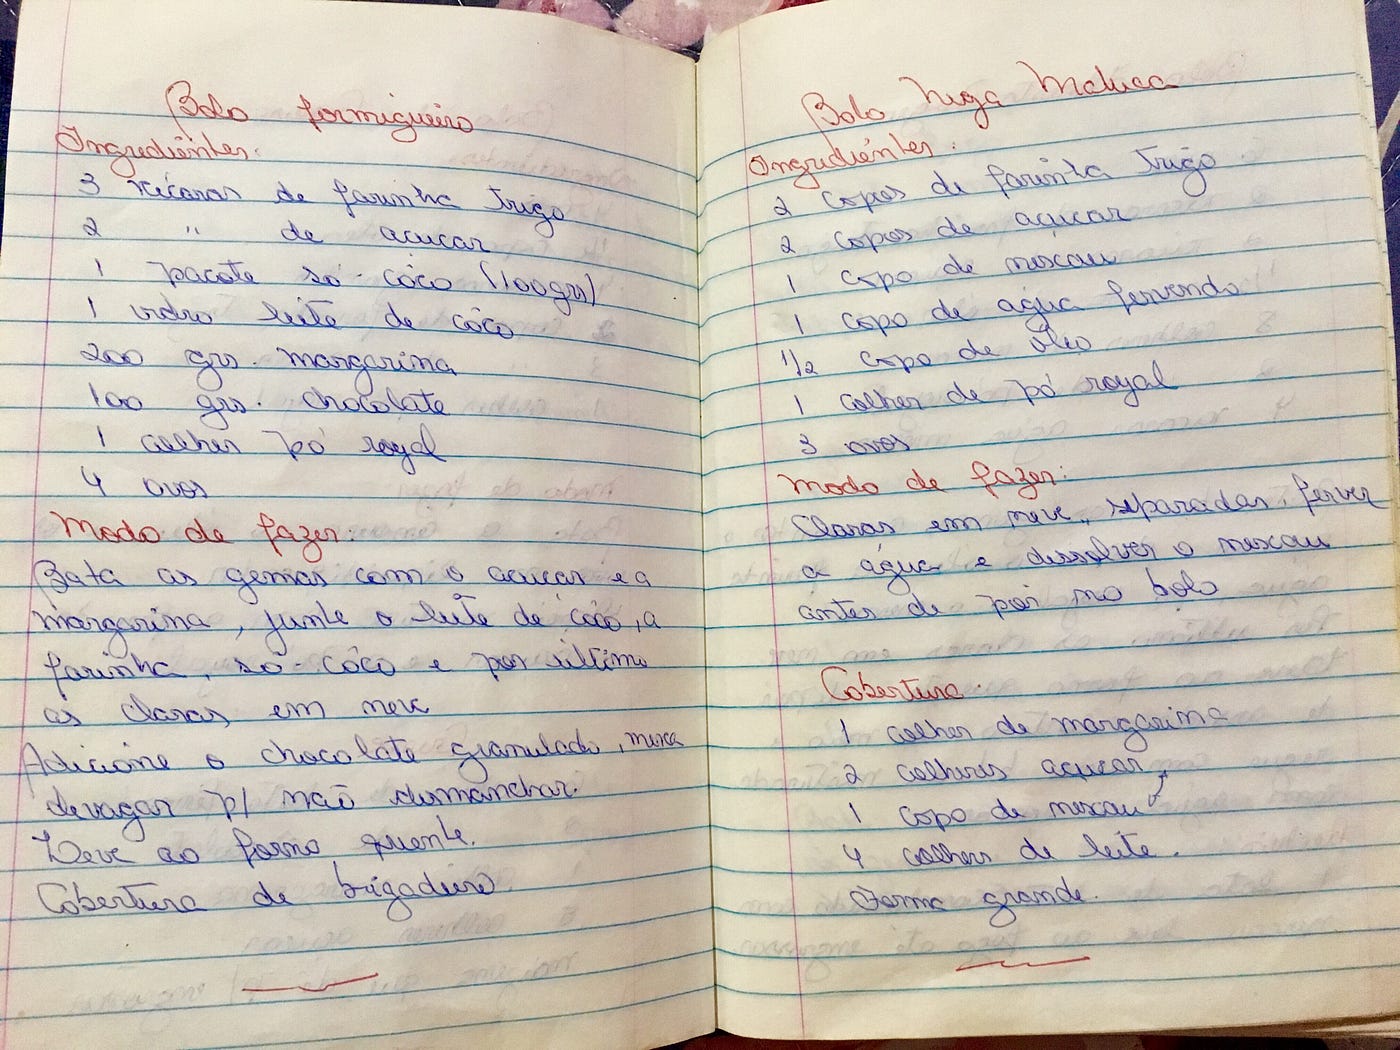 Bolo formigueiro
Ingredientes:
3 xícaras de farinha trigo
2 " de açucar
1 pacote só-côco (100grs)
1 vidro leite de côco
200 grs. margarina
100 grs. chocolate
1 colher pó royal
4 ovos
Modo de fazer:
Bata as gemas com o açucar e a
margarina, junte o leite de côco, a
farinha, só-côco e por ultimo
as claras em neve
Adicione o chocolate granulado, mexa
devagar p/ não desmanchar.
Leve ao forno quente.
Cobertura de brigadeiro
Bolo Nega Maluca
Ingredientes:
2 copos de farinha trigo
2 copos de açucar
1 copo de nescau
1 copo de água fervendo
1/2 copo de óleo
1 colher de pó royal
3 ovos
Modo de fazer:
Claras em neve, separadas, ferver
a água e dissolver o nescau
antes de pôr no bolo
Cobertura:
1 colher de margarina
2 colheres açucar
1 copo de nescau
4 colhers de leite.
Forma grande.